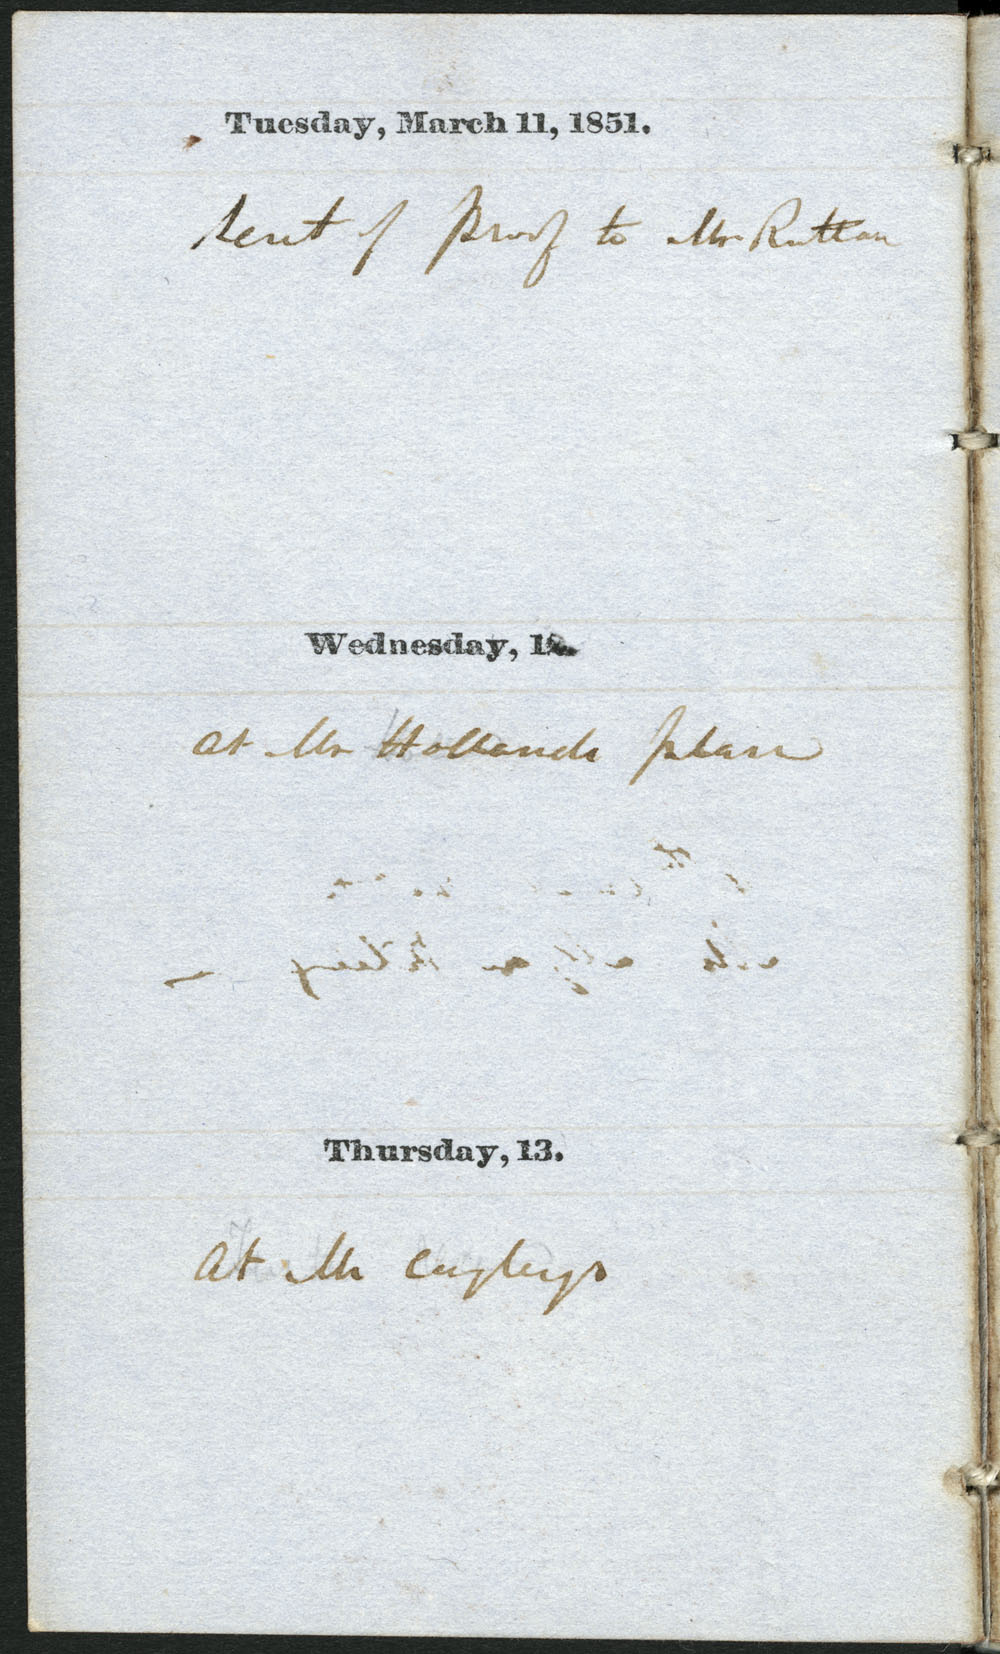 Tuesday, March 11, 1851.
Sent of Proof to Mr Ruttan
Wednesday, 12.
at Mr Hollands plan
Thursday, 13.
At Mr